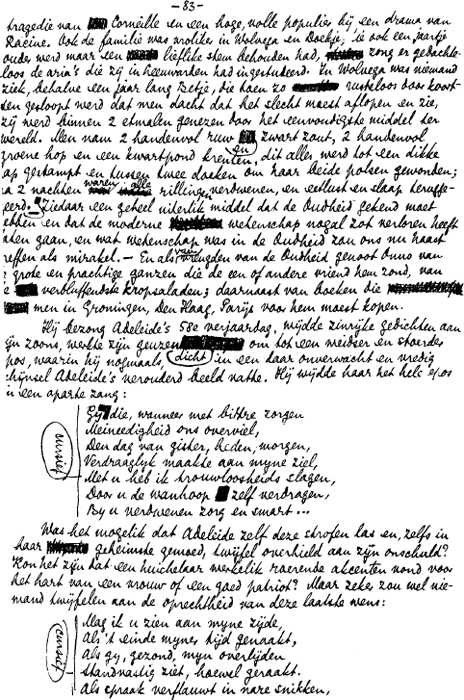 — 83 —
tragedie van Corneille en een hoge, volle populier bij een drama van
Racine. Ook de familie was vrolik in Wolvega en Doekje, die ook een jaartje
ouder werd maar een lieflike stem behouden had, zong er gedachte-
loos de aria's die zij in Leeuwarden had ingestudeerd. In Wolvega was niemand
ziek, behalve een jaar lang Eetje, die toen zo rusteloos door koort-
sen gesloopt werd dat men dacht dat het slecht moest aflopen en zie,
zij werd binnen 2 etmalen genezen door het eenvoudigste middel ter
wereld. Men nam 2 handenvol ruw zwart zout, 2 handenvol
groene hop en een kwartpond krenten, dit alles werd tot een dikke
ap gestampt en tussen twee doeken om haar beide polsen gewonden;
a 2 nachten waren alle rillingen verdwenen, en eetlust en slaap terugge-
eerd. — Ziedaar een geheel uiterlik middel dat de Oudheid gekend moet
ebben en dat de moderne wetenschap nogal zot verloren heeft
aten gaan, en wat wetenschap was in de Oudheid zou ons nu haast
reffen als mirakel. — En als van de Oudheid genoot Onno van
e grote en prachtige ganzen die de een of andere vriend hem zond, van
e verbluffendste kropsaladen; daarnaast van boeken die
men in Groningen, Den Haag, Parijs voor hem moest kopen.
Hij bezong Adeleide's 58e verjaardag, wijdde zinrijke gedichten aan
ijn zoons, werkte zijn geuzen om tot een weidser en stoerder
pos, waarin hij nogmaals, dicht in een daar onverwacht en vredig
chijnsel Adeleide's verouderd beeld vatte. Hij wijdde haar het hele epos
n een aparte zang:
Gy die, wanneer met bittre zorgen
Meineedigheid ons overviel,
Den dag van gister, heden, morgen,
Verdraaglyk maakte aan myne ziel,
Met u heb ik trouwloosheids slagen,
Door u de wanhoop zelf verdragen,
By u verdwenen zorg en smart...
cursief
Was het mogelik dat Adeleide zelf deze strofen las en, zelfs in
haar geheimste gemoed, twijfel overhield aan zijn onschuld?
Kon het zijn dat een huichelaar werkelik roerende akcenten vond voor
het hart van een vrouw of een goed patriot? Maar zeker zou wel nie-
mand twijfelen aan de oprechtheid van deze laatste wens:
Mag ik u zien aan myne zyde,
Als 't einde myner tyd genaakt,
Als gy, gezond, myn overlyden
Standvastig ziet, hoewel geraakt.
Als spraak verflauwt in nare snikken,
cursief